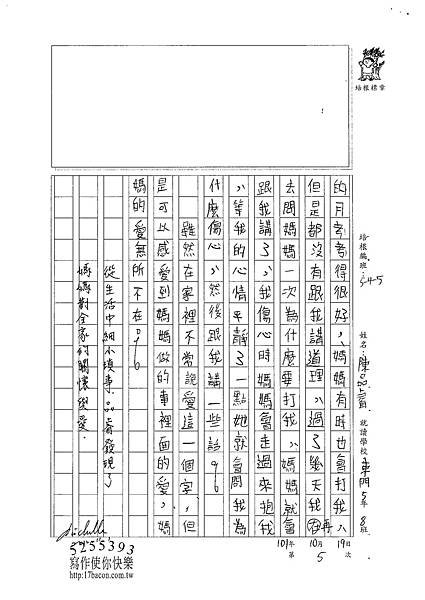 培根標章
培根編班：
姓名：陳品睿
就讀學校：東門5年8班
101年10月19日
第5次
的月考考得很好，媽媽有時也會打我，
但是都沒有跟我講道理，過了幾天我再
去問媽媽一次為什麼要打我，媽媽就會
跟我講了，我傷心時媽媽會走過來抱我
，等我的心情平靜了一點她就會問我為
什麼傷心，然後跟我講一些話。
雖然在家裡不常說愛這一個字，但
是可以感愛到媽媽做的事裡面的愛，媽
媽的愛無所不在。
從生活中細小瑣事，品睿發現了
媽媽對全家的關懷與愛。
Michelle
5255393
寫作使你快樂
http://17bacon.com.tw